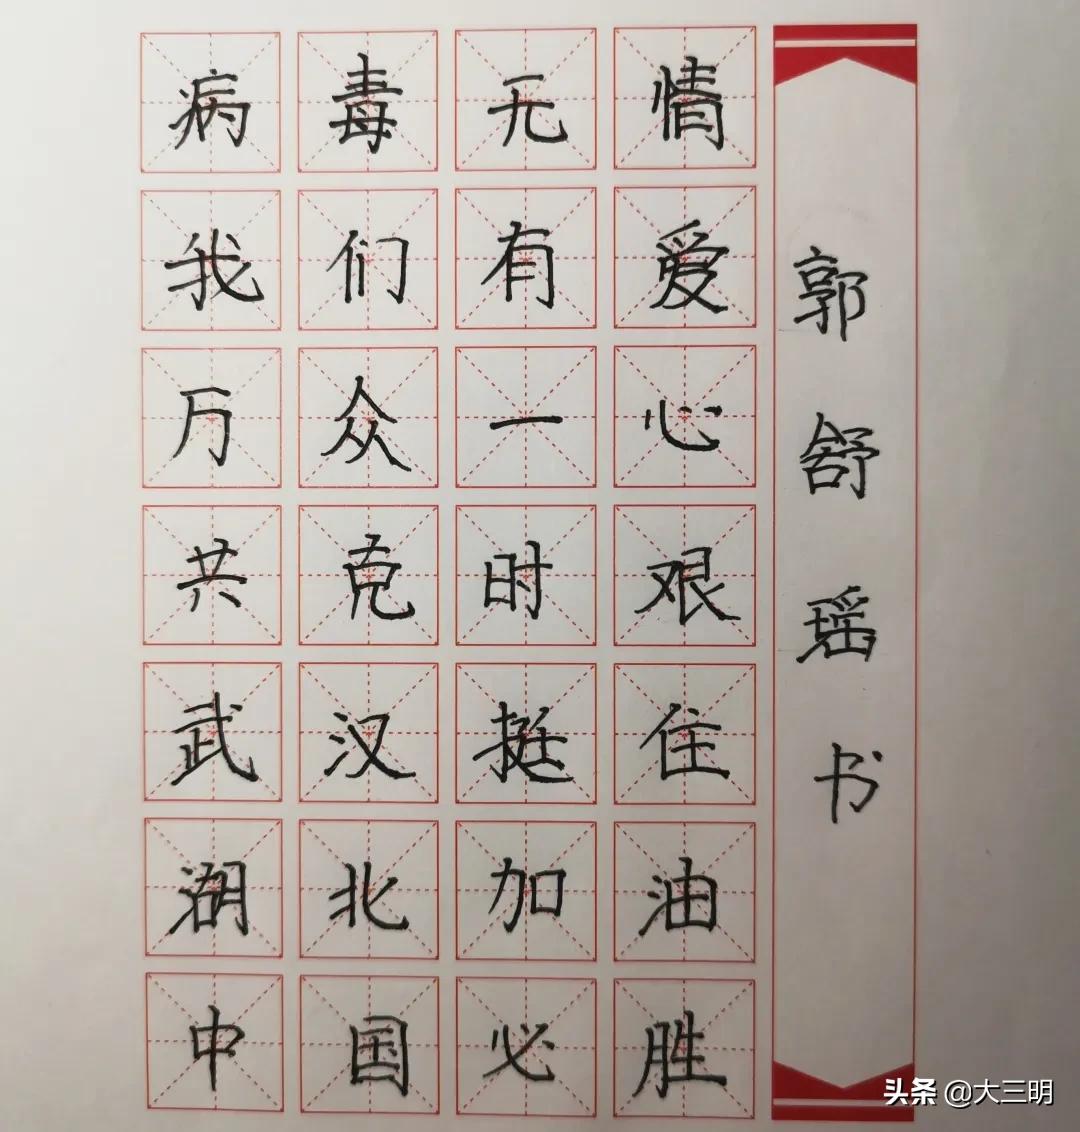 病毒无情
我们有爱
万众一心
共克时艰
武汉挺住
湖北加油
中国必胜
郭舒瑶书
头条 @大三明